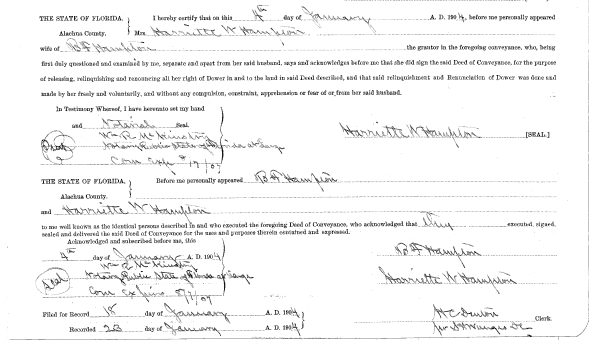 THE STATE OF FLORIDA, I hereby certify that on this 4th day of January A. D. 1904, before me personally appeared
Alachua County. Mrs Harriette W Hampton
wife of B F Hampton the grantor in the foregoing conveyance, who, being
first duly questioned and examined by me, separate and apart from her said husband, says and acknowledges before me that she did sign the said Deed of Conveyance, for the purpose
of releasing, relinquishing and renouncing all her right of Dower in and to the land in said Deed described, and that said relinquishment and Renunciation of Dower was done and
made by her freely and voluntarily, and without any compulsion, constraint, apprehension or fear of or from her said husband.
In Testimony Whereof, I have hereunto set my hand
and Notarial seal
Harriette W Hampton [SEAL.]
Wm R McKinstry
Seal Notary Public State of Florida at Large
Com Exp
THE STATE OF FLORIDA. Before me personally appeared B F Hampton
Alachua County.
and Harriette W Hampton
to me well known as the identical persons described in and who executed the foregoing Deed of Conveyance, who acknowledged that they executed, signed,
sealed and delivered the said Deed of Conveyance for the uses and purposes therein contained and expressed.
Acknowledged and subscribed before me, this
4th day of January A. D. 1904
B F Hampton
Wm R McKinstry
Seal Notary Public State of Florida at Large
Harriette W Hampton
Com Expires
Filed for Record 18 day of January A. D. 1904
Recorded 23 day of January A. D. 1904
Clerk.